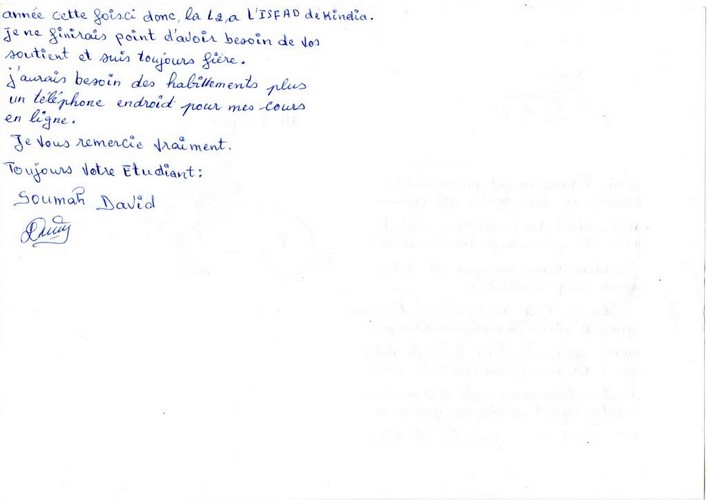 année cette foisci donc, la L2, a L'ISFAD de Kindia.
je ne finirais point d'avoir besoin de vos
soutient et suis toujours fière.
j'aurais besoin des habillements plus
un téléphone endroid pour mes cours
en ligne.
Je vous remercie vraiment.
Toujours Votre Etudiant:
Soumah David